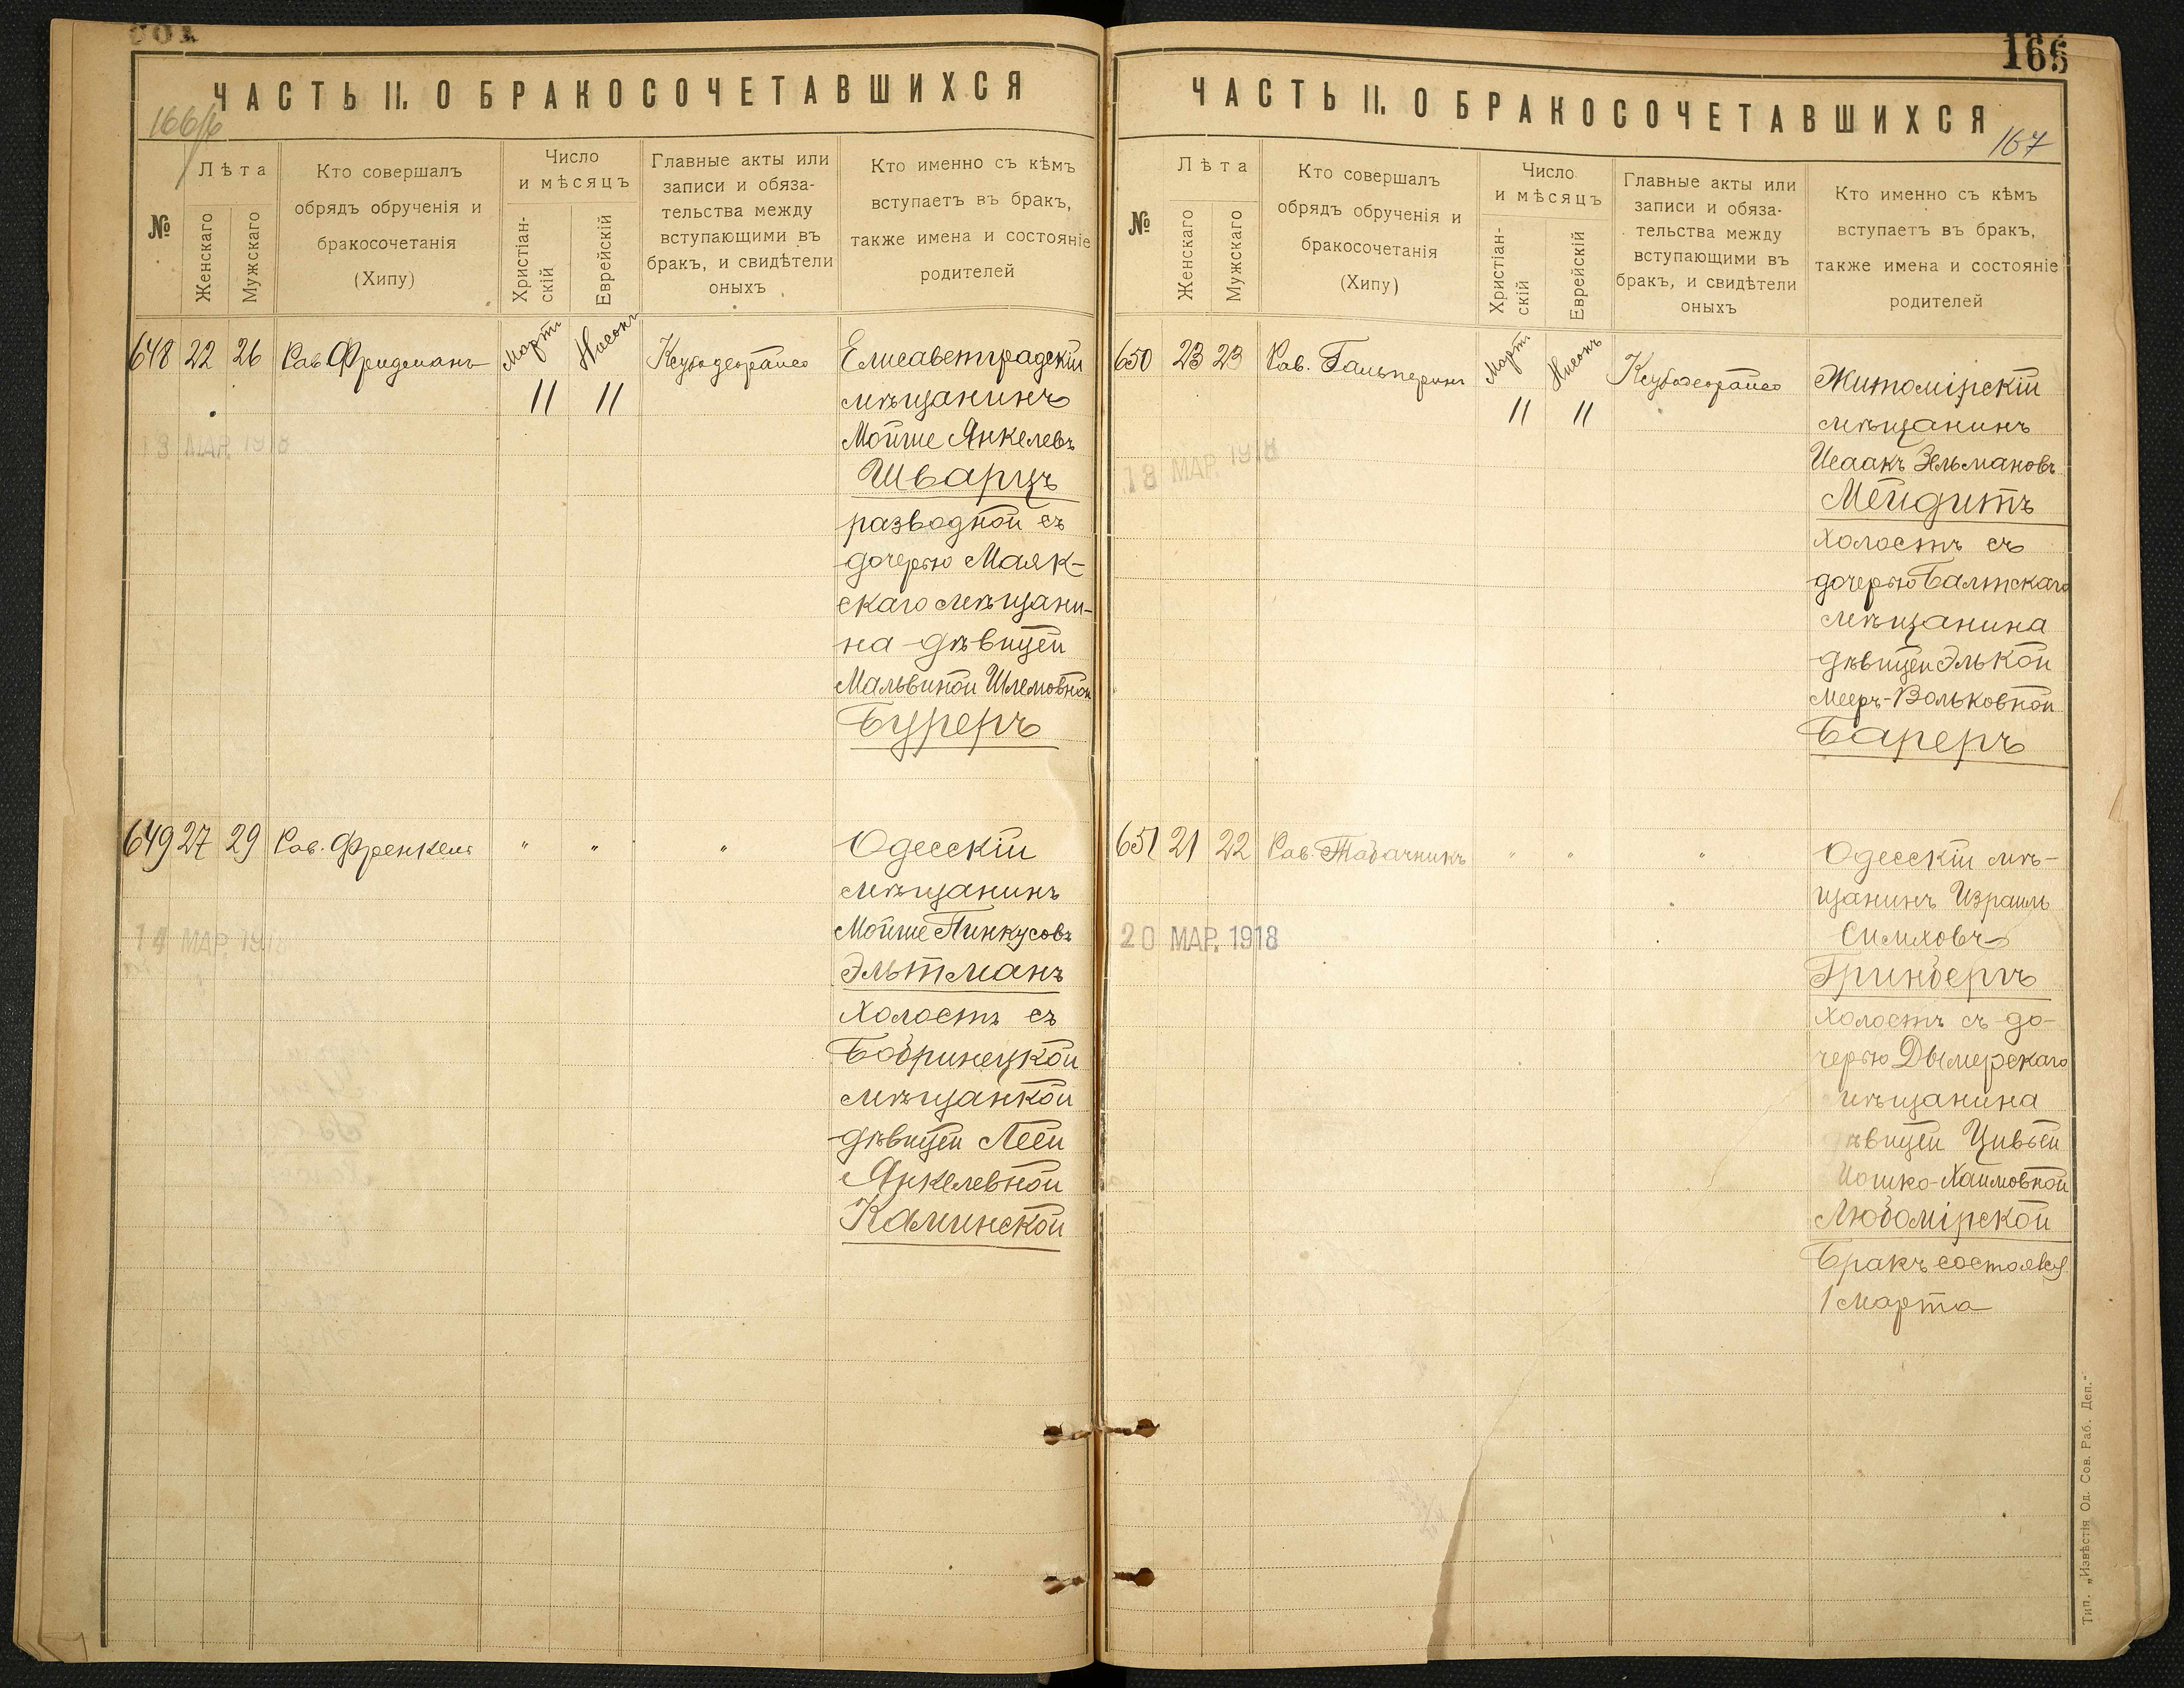 ЧАСТЬ II. О БРАКОСОЧЕТАВШИХСЯ
№
Лѣта
Женскаго
Мужскаго
Кто совершалъ
обрядъ обрученія и
бракосочетанія
(Хипу)
Число
и мѣсяцъ
Христіан-
скій
Еврейскій
Главные акты или
записи и обяза-
тельства между
вступающими въ
бракъ, и свидѣтели
оныхъ
Кто именно съ кѣмъ
вступаетъ въ бракъ,
также имена и состояніе
родителей
648 22 26 Рав. Фридманъ Мартъ Нисонъ
11 11
13 МАР. 1918
Елисаветградскій
мѣщанинъ
Мойше Янкелевъ
Шварцъ
разводной съ
дочерью Маяк-
скаго мѣщани-
на дѣвицей
Мальвиной Шлемовной
Буреръ
649 27 29 Рав. Френкель " " "
14 МАР. 1918
Одесскій
мѣщанинъ
Мойше Пинкусовъ
Эльтманъ
холостъ съ
Бобринецкой
мѣщанкой
дѣвицей Леей
Янкелевной
Каминской
166
ЧАСТЬ II. О БРАКОСОЧЕТАВШИХСЯ
167
№
Лѣта
Женскаго
Мужскаго
Кто совершалъ
обрядъ обрученія и
бракосочетанія
(Хипу)
Число
и мѣсяцъ
Христіан-
скій
Еврейскій
Главные акты или
записи и обяза-
тельства между
вступающими въ
бракъ, и свидѣтели
оныхъ
Кто именно съ кѣмъ
вступаетъ въ бракъ,
также имена и состояніе
родителей
650 23 23 Рав. Гальперинъ Мартъ Нисонъ
11 11
18 МАР. 1918
Житомірскій
мѣщанинъ
Исаакъ Зельмановъ
Мейдитъ
холостъ съ
дочерью Балтскаго
мѣщанина
дѣвицей Элькой
Мееръ-Вольковной
Бареръ
651 21 22 Рав. Табачникъ " " "
20 МАР. 1918
Одесскій мѣ-
щанинъ Израиль
Симховъ
Гринбергъ
холостъ съ до-
черью Дымерскаго
мѣщанина
дѣвицей Цивьей
Иошко-Хаимовной
Любомірской
Бракъ состоялся
1 Марта
Тип. „Извѣстія Од. Сов. Раб. Деп."